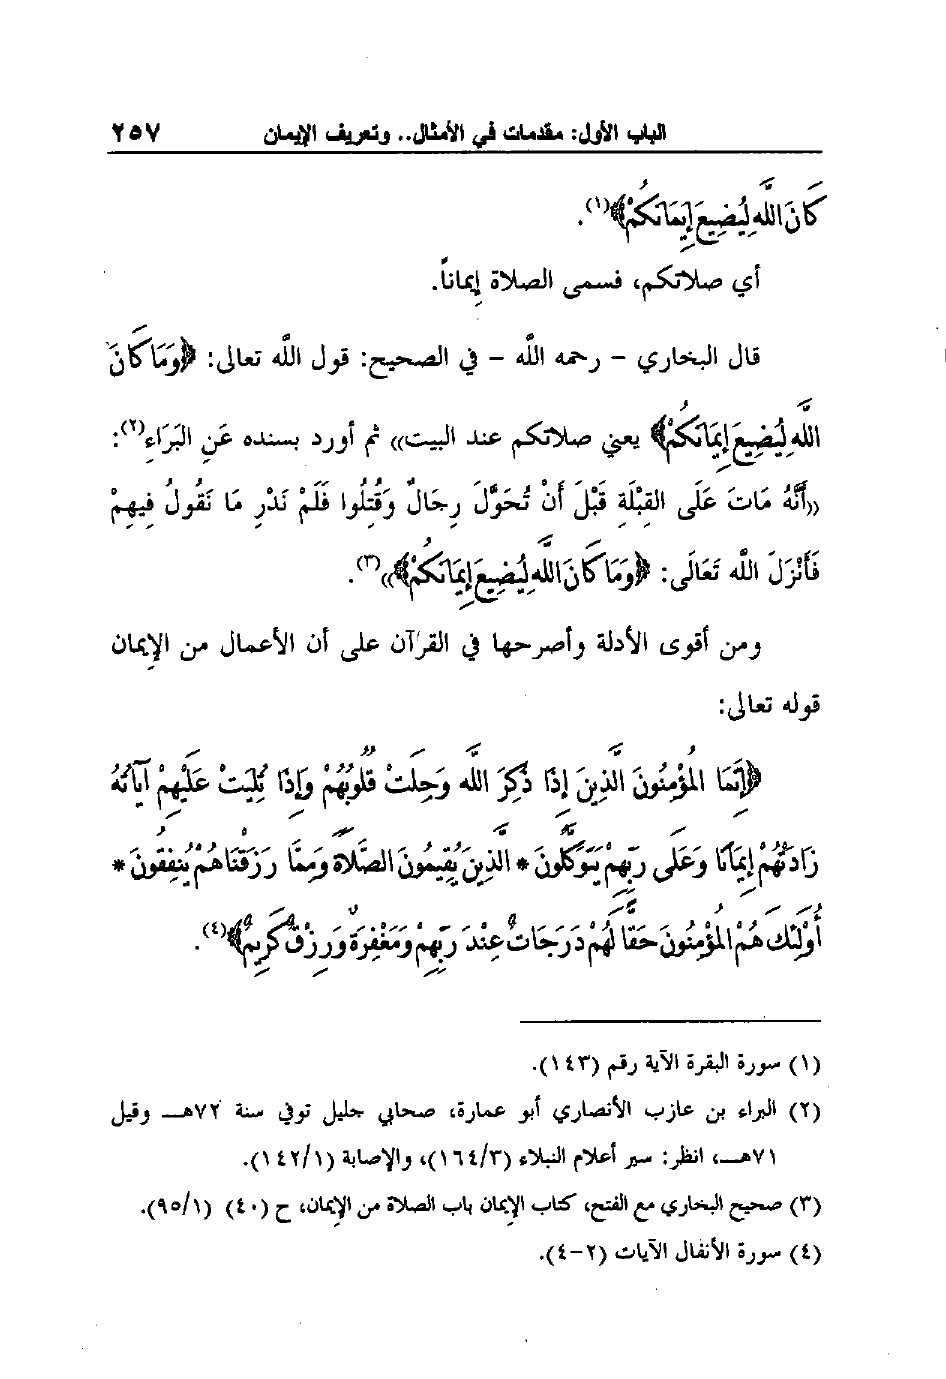 الباب الأول: مقدمات في الأمثال.. وتعريف الإيمان ٢٥٧
كَانَ اللَّهُ لِيُضِيعَ إِيمَانَكُمْ﴾(١).
أي صلاتكم، فسمى الصلاة إيماناً.
قال البخاري - رحمه اللَّه - في الصحيح: قول اللَّه تعالى: ﴿وَمَا كَانَ
اللَّهُ لِيُضِيعَ إِيمَانَكُمْ﴾ يعني صلاتكم عند البيت)) ثم أورد بسنده عَنِ البَرَاءِ(٢):
((أَنَّهُ مَاتَ عَلَى القِبْلَةِ قَبْلَ أَنْ تُحَوَّلَ رِجَالٌ وَقُتِلُوا فَلَمْ نَدْرِ مَا نَقُولُ فِيهِمْ
فَأَنْزَلَ اللَّه تَعَالَى: ﴿وَمَا كَانَ اللَّهُ لِيُضِيعَ إِيمَانَكُمْ﴾))(٣).
ومن أقوى الأدلة وأصرحها في القرآن على أن الأعمال من الإيمان
قوله تعالى:
﴿إِنَّمَا الْمُؤْمِنُونَ الَّذِينَ إِذَا ذُكِرَ اللَّهُ وَجِلَتْ قُلُوبُهُمْ وَإِذَا تُلِيَتْ عَلَيْهِمْ آيَاتُهُ
زَادَتْهُمْ إِيمَانًا وَعَلَى رَبِّهِمْ يَتَوَكَّلُونَ * الَّذِينَ يُقِيمُونَ الصَّلَاةَ وَمِمَّا رَزَقْنَاهُمْ يُنفِقُونَ *
أُوْلَئِكَ هُمُ الْمُؤْمِنُونَ حَقًّا لَهُمْ دَرَجَاتٌ عِنْدَ رَبِّهِمْ وَمَغْفِرَةٌ وَرِزْقٌ كَرِيمٌ﴾(٤).
(١) سورة البقرة الآية رقم (١٤٣).
(٢) البراء بن عازب الأنصاري أبو عمارة، صحابي جليل توفي سنة ٧٢هـ وقيل
٧١هـ، انظر: سير أعلام النبلاء (١٦٤/٣)، والإصابة (١٤٢/١).
(٣) صحيح البخاري مع الفتح، كتاب الإيمان باب الصلاة من الإيمان، ح (٤٠) (٩٥/١).
(٤) سورة الأنفال الآيات (٢-٤).